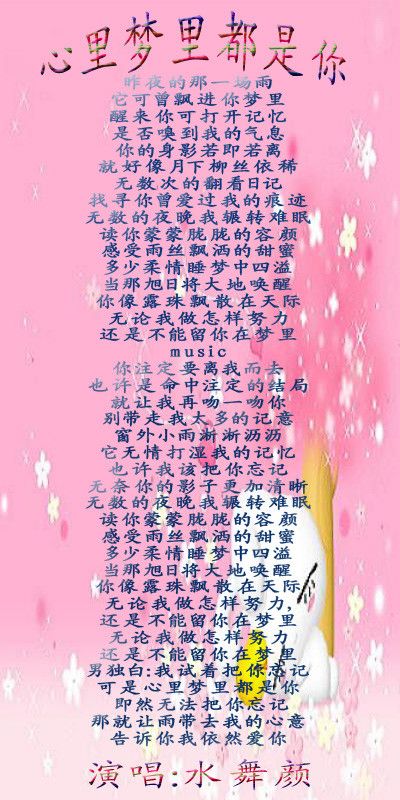 心里梦里都是你
昨夜的那一场雨
它可曾飘进你梦里
醒来你可打开记忆
是否嗅到我的气息
你的身影若即若离
就好像月下柳丝依稀
无数次的翻看日记
找寻你曾爱过我的痕迹
无数的夜晚我辗转难眠
读你蒙蒙胧胧的容颜
感受雨丝飘洒的甜蜜
多少柔情睡梦中四溢
当那旭日将大地唤醒
你像露珠飘散在天际
无论我做怎样努力
还是不能留你在梦里
music
你注定要离我而去
也许是命中注定的结局
就让我再吻一吻你
别带走我太多的记意
窗外小雨淅淅沥沥
它无情打湿我的记忆
也许我该把你忘记
无奈你的影子更加清晰
无数的夜晚我辗转难眠
读你蒙蒙胧胧的容颜
感受雨丝飘洒的甜蜜
多少柔情睡梦中四溢
当那旭日将大地唤醒
你像露珠飘散在天际
无论我做怎样努力,
还是不能留你在梦里
无论我做怎样努力
还是不能留你在梦里
男独白:我试着把你忘记
可是心里梦里都是你
即然无法把你忘记
那就让雨带去我的心意
告诉你我依然爱你
演唱:水舞颜